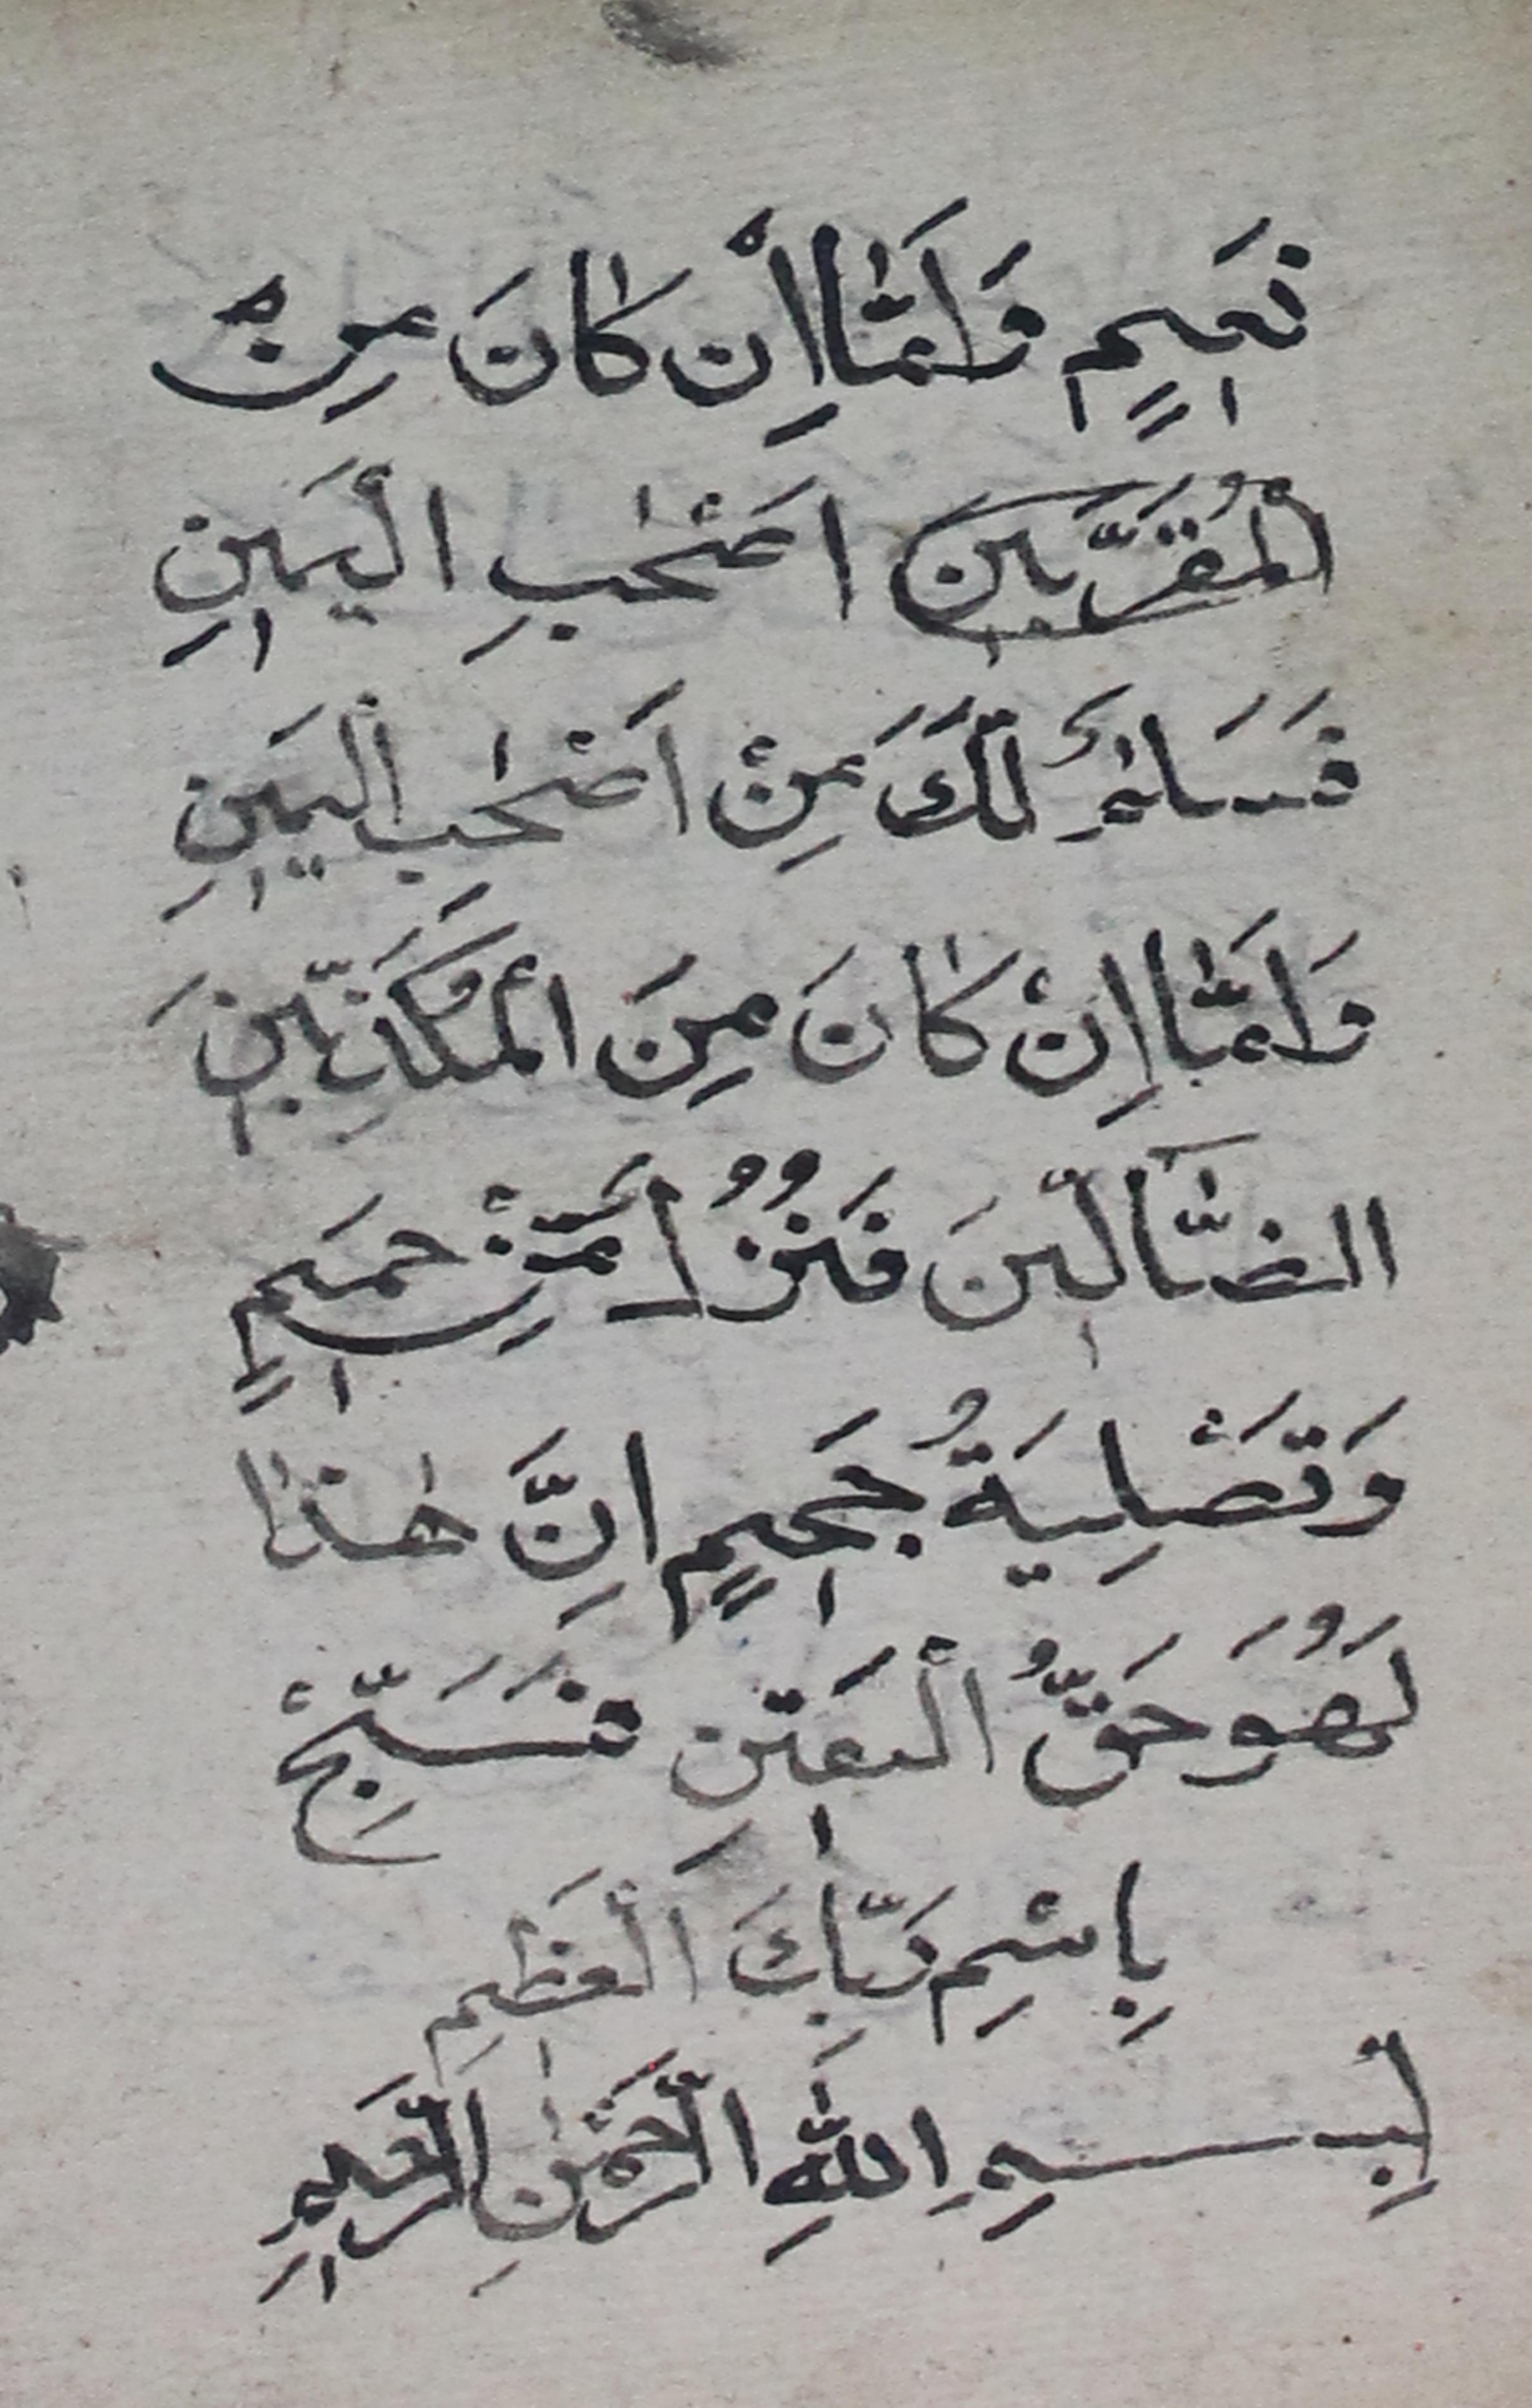 نَعِيمٍ وَاَمَّا اِنْ كَانَ مِنْ
الْمُقَرَّبِينَ اَصْحٰبِ الْيَمِينِ
فَسَلٰمٌ لَكَ مِنْ اَصْحٰبِ الْيَمِينِ
وَاَمَّا اِنْ كَانَ مِنَ الْمُكَذِّبِينَ
الضَّالِّينَ فَنُزُلٌ مِنْ حَمِيمٍ
وَتَصْلِيَةُ جَحِيمٍ اِنَّ هٰذَا
لَهُوَ حَقُّ الْيَقِينِ فَسَبِّحْ
بِاسْمِ رَبِّكَ الْعَظِيمِ
بِسْمِ اللّٰهِ الرَّحْمٰنِ الرَّحِيمِ